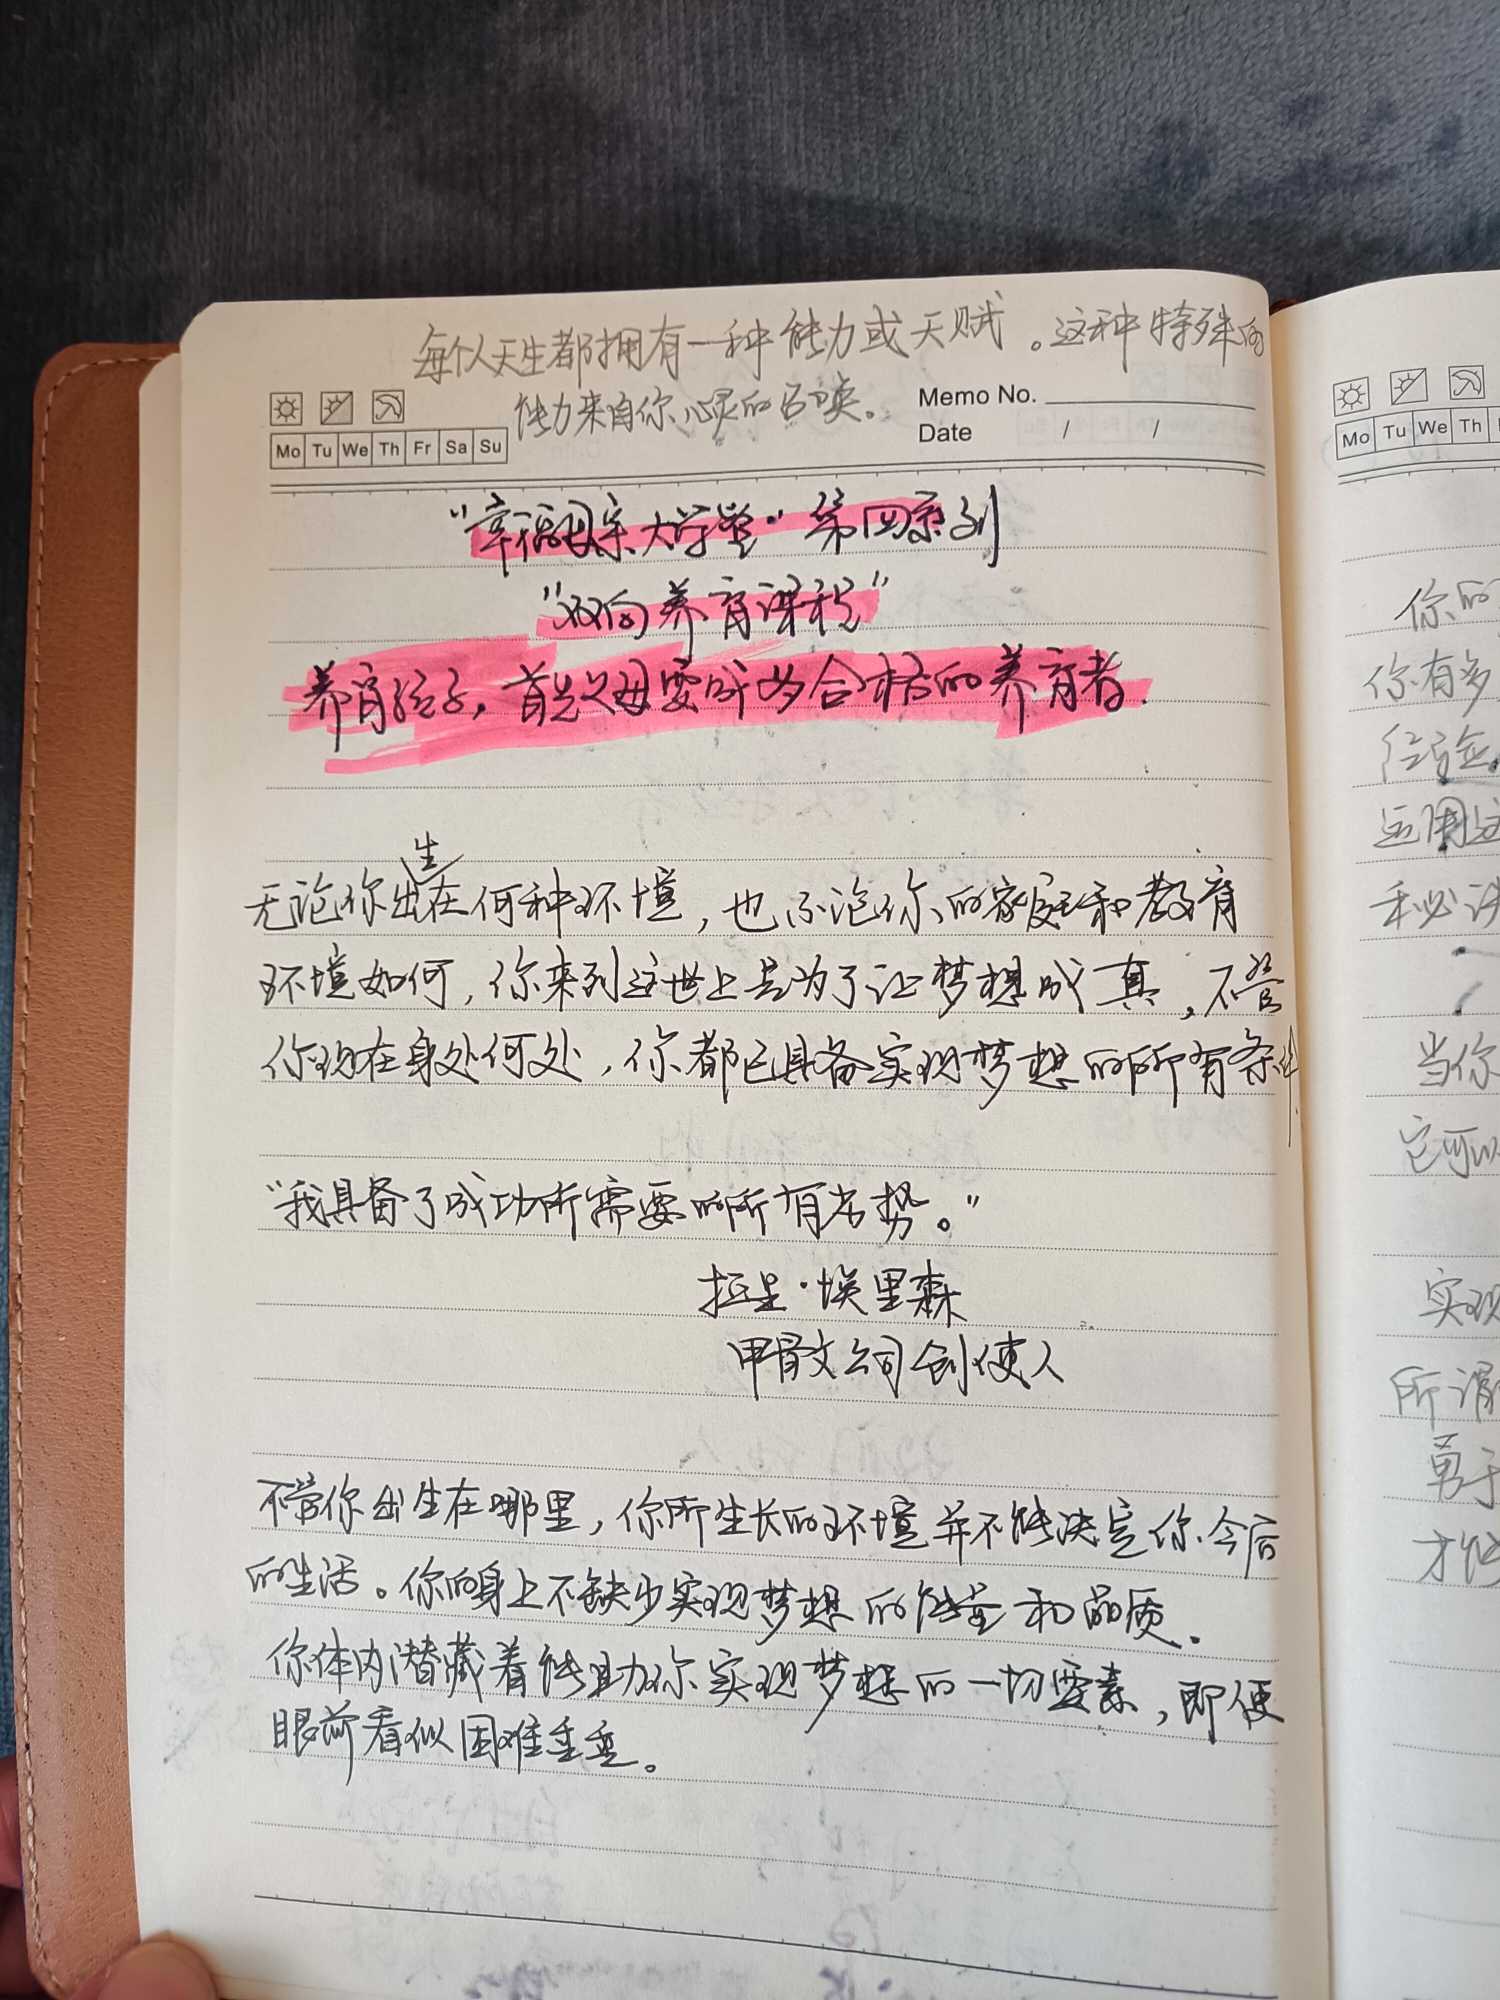 每个人天生都拥有一种能力或天赋。这种特殊的
能力来自你心灵的召唤。
Memo No.
Date / /
Mo Tu We Th Fr Sa Su
“幸福母亲大学堂”第四系列
“双向养育课程”
养育孩子，首先父母要成为合格的养育者.
无论你出生在何种环境，也不论你的家庭和教育
环境如何，你来到这世上是为了让梦想成真，不管
你现在身处何处，你都已具备实现梦想的所有条件.
“我具备了成功所需要的所有劣势。”
拉里·埃里森
甲骨文公司创使人
不管你出生在哪里，你所生长的环境并不能决定你今后
的生活。你的身上不缺少实现梦想的能量和品质.
你体内潜藏着能助你实现梦想的一切要素，即便
眼前看似困难重重。
Mo Tu We Th
你的
你有多
经验
运用这
秘诀
当你
它可以
实现
所谓
勇于
才能